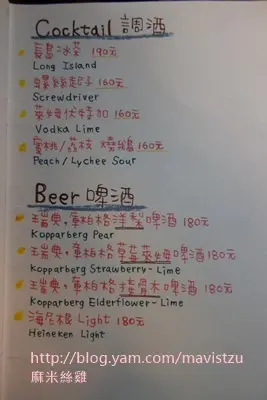 Cocktail 調酒
長島冰茶 190元
Long Island
螺絲起子 160元
Screwdriver
萊姆伏特加 160元
Vodka Lime
蜜桃/荔枝 燒鍋 160元
Peach/Lychee Sour
Beer 啤酒
瑞典,軍柏格洋梨啤酒 180元
Kopparberg Pear
瑞典,軍柏格草莓萊姆啤酒 180元
Kopparberg Strawberry-Lime
瑞典,軍柏格接骨木啤酒 180元
Kopparberg Elderflower-Lime
海尼根 Light 180元
Heineken Light
http://blog.yam.com/mavistzu
麻米絲雞